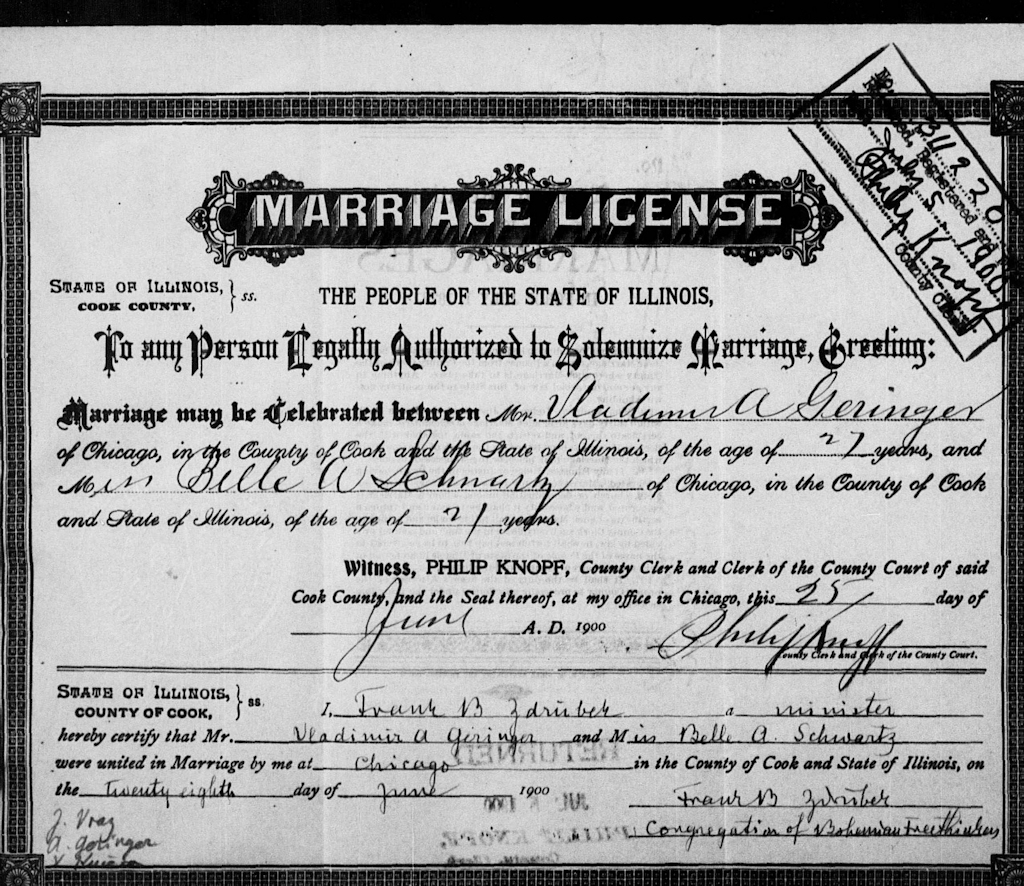 No. 311220
Returned, Registered and
July 5 1900
Philip Knopf
County Clerk
MARRIAGE LICENSE
STATE OF ILLINOIS, COOK COUNTY, } ss.
THE PEOPLE OF THE STATE OF ILLINOIS,
To any Person Legally Authorized to Solemnize Marriage, Greeting:
Marriage may be Celebrated between Mr. Vladimir A Geringer
of Chicago, in the County of Cook and the State of Illinois, of the age of 27 years, and
Miss Belle A Schwartz of Chicago, in the County of Cook
and State of Illinois, of the age of 21 years.
Witness, PHILIP KNOPF, County Clerk and Clerk of the County Court of said
Cook County, and the Seal thereof, at my office in Chicago, this 25 day of
June A. D. 1900
Philip Knopf
County Clerk and Clerk of the County Court.
STATE OF ILLINOIS, COUNTY OF COOK, } ss.
I, Frank B Zdrubek a minister
hereby certify that Mr. Vladimir A Geringer and Miss Belle A. Schwartz
were united in Marriage by me at Chicago in the County of Cook and State of Illinois, on
the twenty eighth day of June 1900
Frank B Zdrubek
Congregation of Bohemian Freethinkers
J. Vraz
A. Geringer
RETURNED